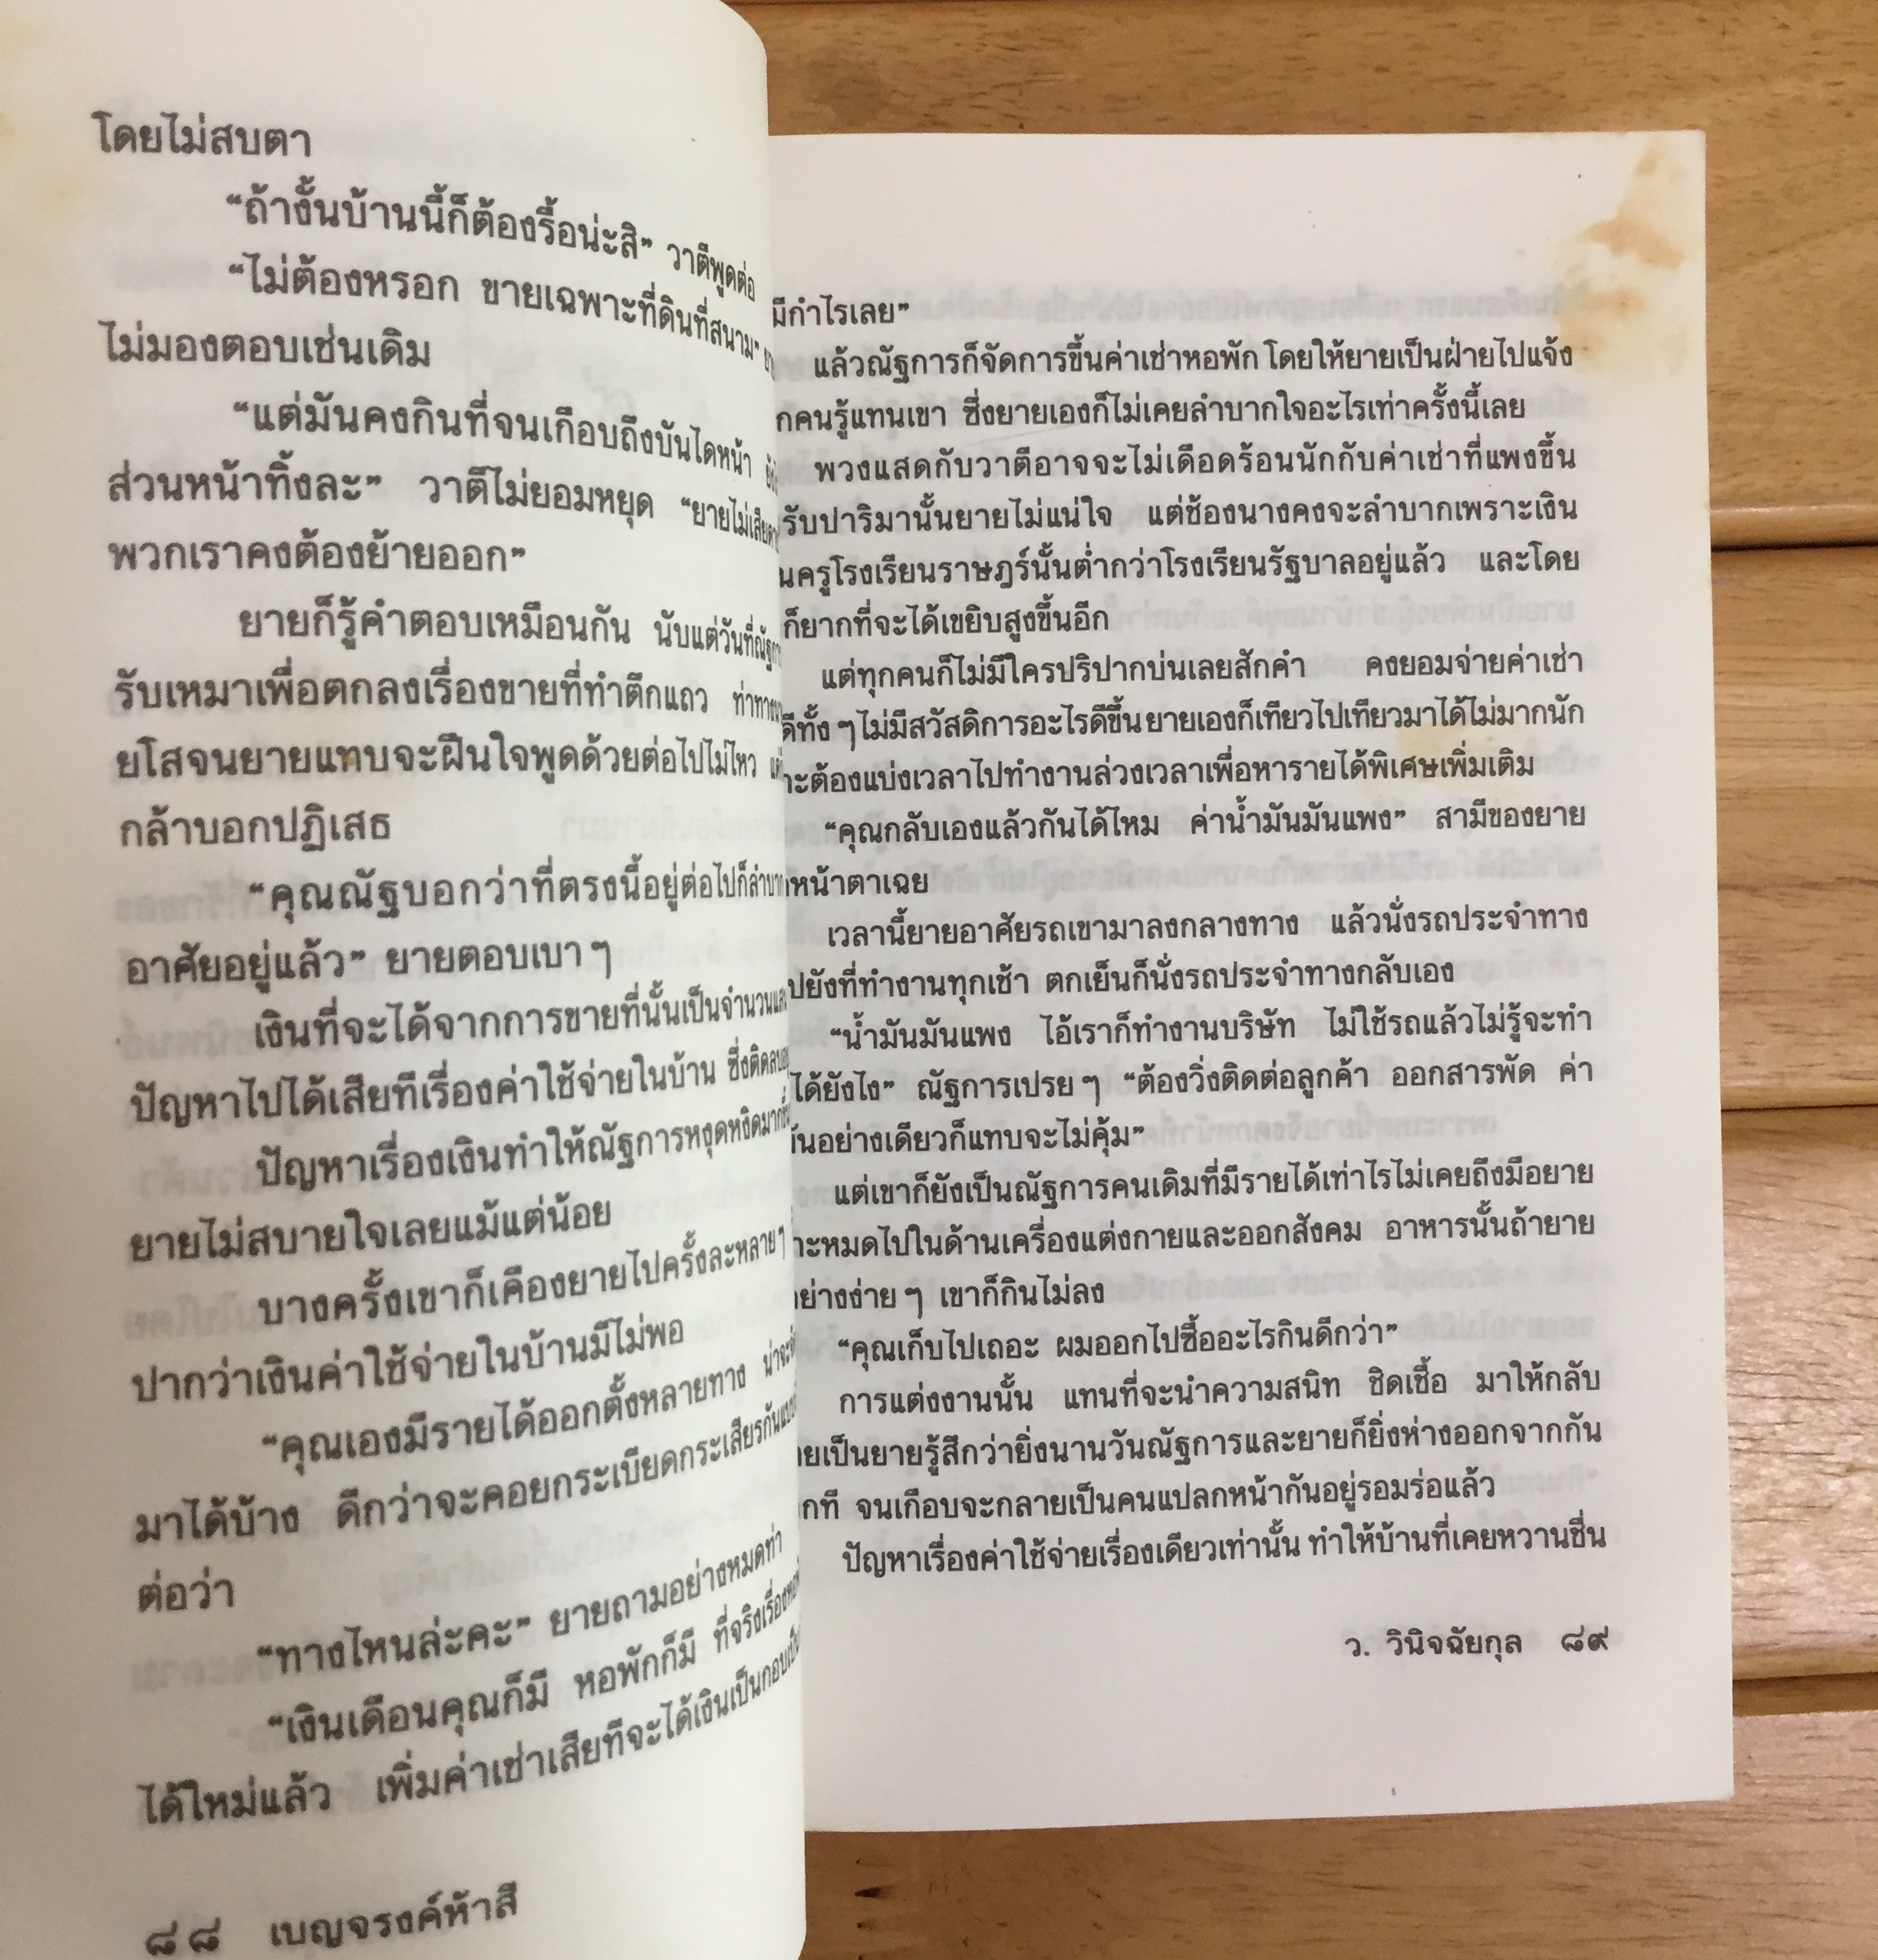 โดยไม่สบตา
“ถ้างั้นบ้านนี้ก็ต้องรื้อน่ะสิ” วาตีพูดต่อ
“ไม่ต้องหรอก ขายเฉพาะที่ดินที่สนาม”
ไม่มองตอบเช่นเดิม
“แต่มันคงกินที่จนเกือบถึงบันไดหน้า
ส่วนหน้าทิ้งละ” วาตีไม่ยอมหยุด “ยายไม่เสีย
พวกเราคงต้องย้ายออก”
ยายก็รู้คำตอบเหมือนกัน นับแต่วันที่
รับเหมาเพื่อตกลงเรื่องขายที่ทำตึกแถว
ยโสจนยายแทบจะฝืนใจพูดด้วยต่อไปไม่ไหว
กล้าบอกปฏิเสธ
“คุณณัฐบอกว่าที่ตรงนี้อยู่ต่อไปก็ลำบาก
อาศัยอยู่แล้ว” ยายตอบเบา ๆ
เงินที่จะได้จากการขายที่นั้นเป็นจำนวน
ปัญหาไปได้เสียทีเรื่องค่าใช้จ่ายในบ้าน
ปัญหาเรื่องเงินทำให้ณัฐการหงุดหงิดมาก
ยายไม่สบายใจเลยแม้แต่น้อย
บางครั้งเขาก็เคืองยายไปครั้งละหลาย ๆ
ปากว่าเงินค่าใช้จ่ายในบ้านมีไม่พอ
“คุณเองมีรายได้ออกตั้งหลายทาง
มาได้บ้าง ดีกว่าจะคอยกระเบียดกระเสียรกัน
ต่อว่า
“ทางไหนล่ะคะ” ยายถามอย่างหมดท่า
“เงินเดือนคุณก็มี หอพักก็มี ที่จริงเรื่อง
ได้ใหม่แล้ว เพิ่มค่าเช่าเสียทีจะได้เงินเป็นกอบ
๘๘ เบญจรงค์ห้าสี
มีกำไรเลย”
แล้วณัฐการก็จัดการขึ้นค่าเช่าหอพัก โดยให้ยายเป็นฝ่ายไปแจ้ง
กคนรู้แทนเขา ซึ่งยายเองก็ไม่เคยลำบากใจอะไรเท่าครั้งนี้เลย
พวงแสดกับวาตีอาจจะไม่เดือดร้อนนักกับค่าเช่าที่แพงขึ้น
รับปาริมานั้นยายไม่แน่ใจ แต่ช้องนางคงจะลำบากเพราะเงิน
นครูโรงเรียนราษฎร์นั้นต่ำกว่าโรงเรียนรัฐบาลอยู่แล้ว และโดย
ก็ยากที่จะได้เขยิบสูงขึ้นอีก
แต่ทุกคนก็ไม่มีใครปริปากบ่นเลยสักคำ คงยอมจ่ายค่าเช่า
ดีทั้ง ๆ ไม่มีสวัสดิการอะไรดีขึ้น ยายเองก็เทียวไปเทียวมาได้ไม่มากนัก
าะต้องแบ่งเวลาไปทำงานล่วงเวลาเพื่อหารายได้พิเศษเพิ่มเติม
“คุณกลับเองแล้วกันได้ไหม ค่าน้ำมันมันแพง” สามีของยาย
หน้าตาเฉย
เวลานี้ยายอาศัยรถเขามาลงกลางทาง แล้วนั่งรถประจำทาง
ปยังที่ทำงานทุกเช้า ตกเย็นก็นั่งรถประจำทางกลับเอง
“น้ำมันมันแพง ไอ้เราก็ทำงานบริษัท ไม่ใช้รถแล้วไม่รู้จะทำ
ได้ยังไง” ณัฐการเปรย ๆ “ต้องวิ่งติดต่อลูกค้า ออกสารพัด ค่า
ันอย่างเดียวก็แทบจะไม่คุ้ม”
แต่เขาก็ยังเป็นณัฐการคนเดิมที่มีรายได้เท่าไรไม่เคยถึงมือยาย
าะหมดไปในด้านเครื่องแต่งกายและออกสังคม อาหารนั้นถ้ายาย
ย่างง่าย ๆ เขาก็กินไม่ลง
“คุณเก็บไปเถอะ ผมออกไปซื้ออะไรกินดีกว่า”
การแต่งงานนั้น แทนที่จะนำความสนิท ชิดเชื้อ มาให้กลับ
ายเป็นยายรู้สึกว่ายิ่งนานวันณัฐการและยายก็ยิ่งห่างออกจากกัน
กที จนเกือบจะกลายเป็นคนแปลกหน้ากันอยู่รอมร่อแล้ว
ปัญหาเรื่องค่าใช้จ่ายเรื่องเดียวเท่านั้น ทำให้บ้านที่เคยหวานชื่น
ว. วินิจฉัยกุล ๘๙